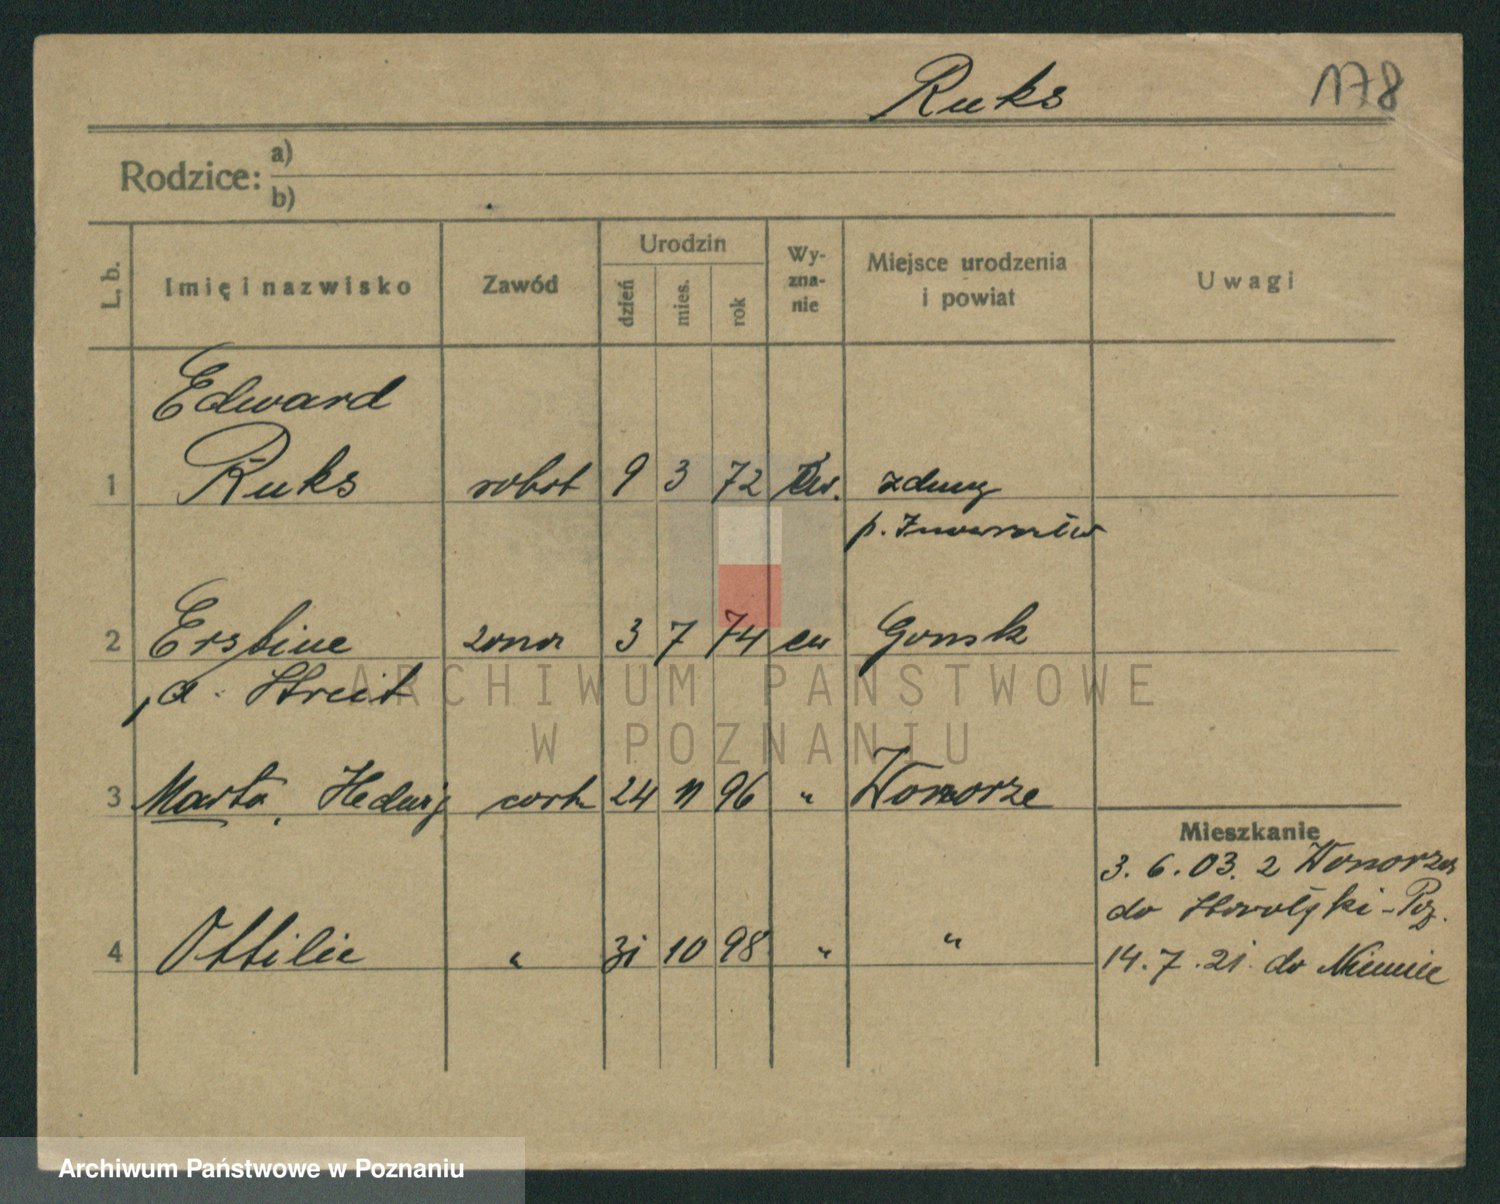 Ruks 178
Rodzice: a)
b)
L. b. Imię i nazwisko Zawód Urodzin dzień mies. rok Wy-zna-nie Miejsce urodzenia i powiat Uwagi
Edward
1 Ruks robot 9 3 72 Ew. Zduny
p.
2 żona 3 7 74 ew Gonsk
d. Streit
3 Marta, Hedwig 24 11 96 " Wonorze
Mieszkanie
3. 6. 03. z Wonorza
do - Poz.
4 Ottilie " 31 10 98 " "
14. 7. 21. do Niemiec
ARCHIWUM PAŃSTWOWE
W POZNANIU
Archiwum Państwowe w Poznaniu